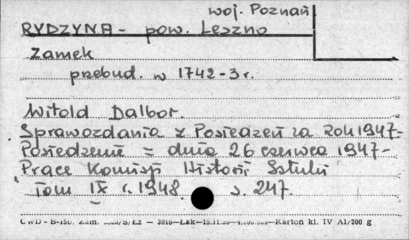 woj. Poznań
RYDZYNA - pow. Leszno
Zamek
przebud. w 1742-3 r.
Witold Dalbor.
Sprawozdania z Posiedzeń za Rok 1947-
Posiedzenie z dnia 26 czerwca 1947-
Prace Komisji Historii Sztuki
Tom IX r. 1948 s. 247.
CWD - B-150. Zam. Karton kl. IV A1/200 g